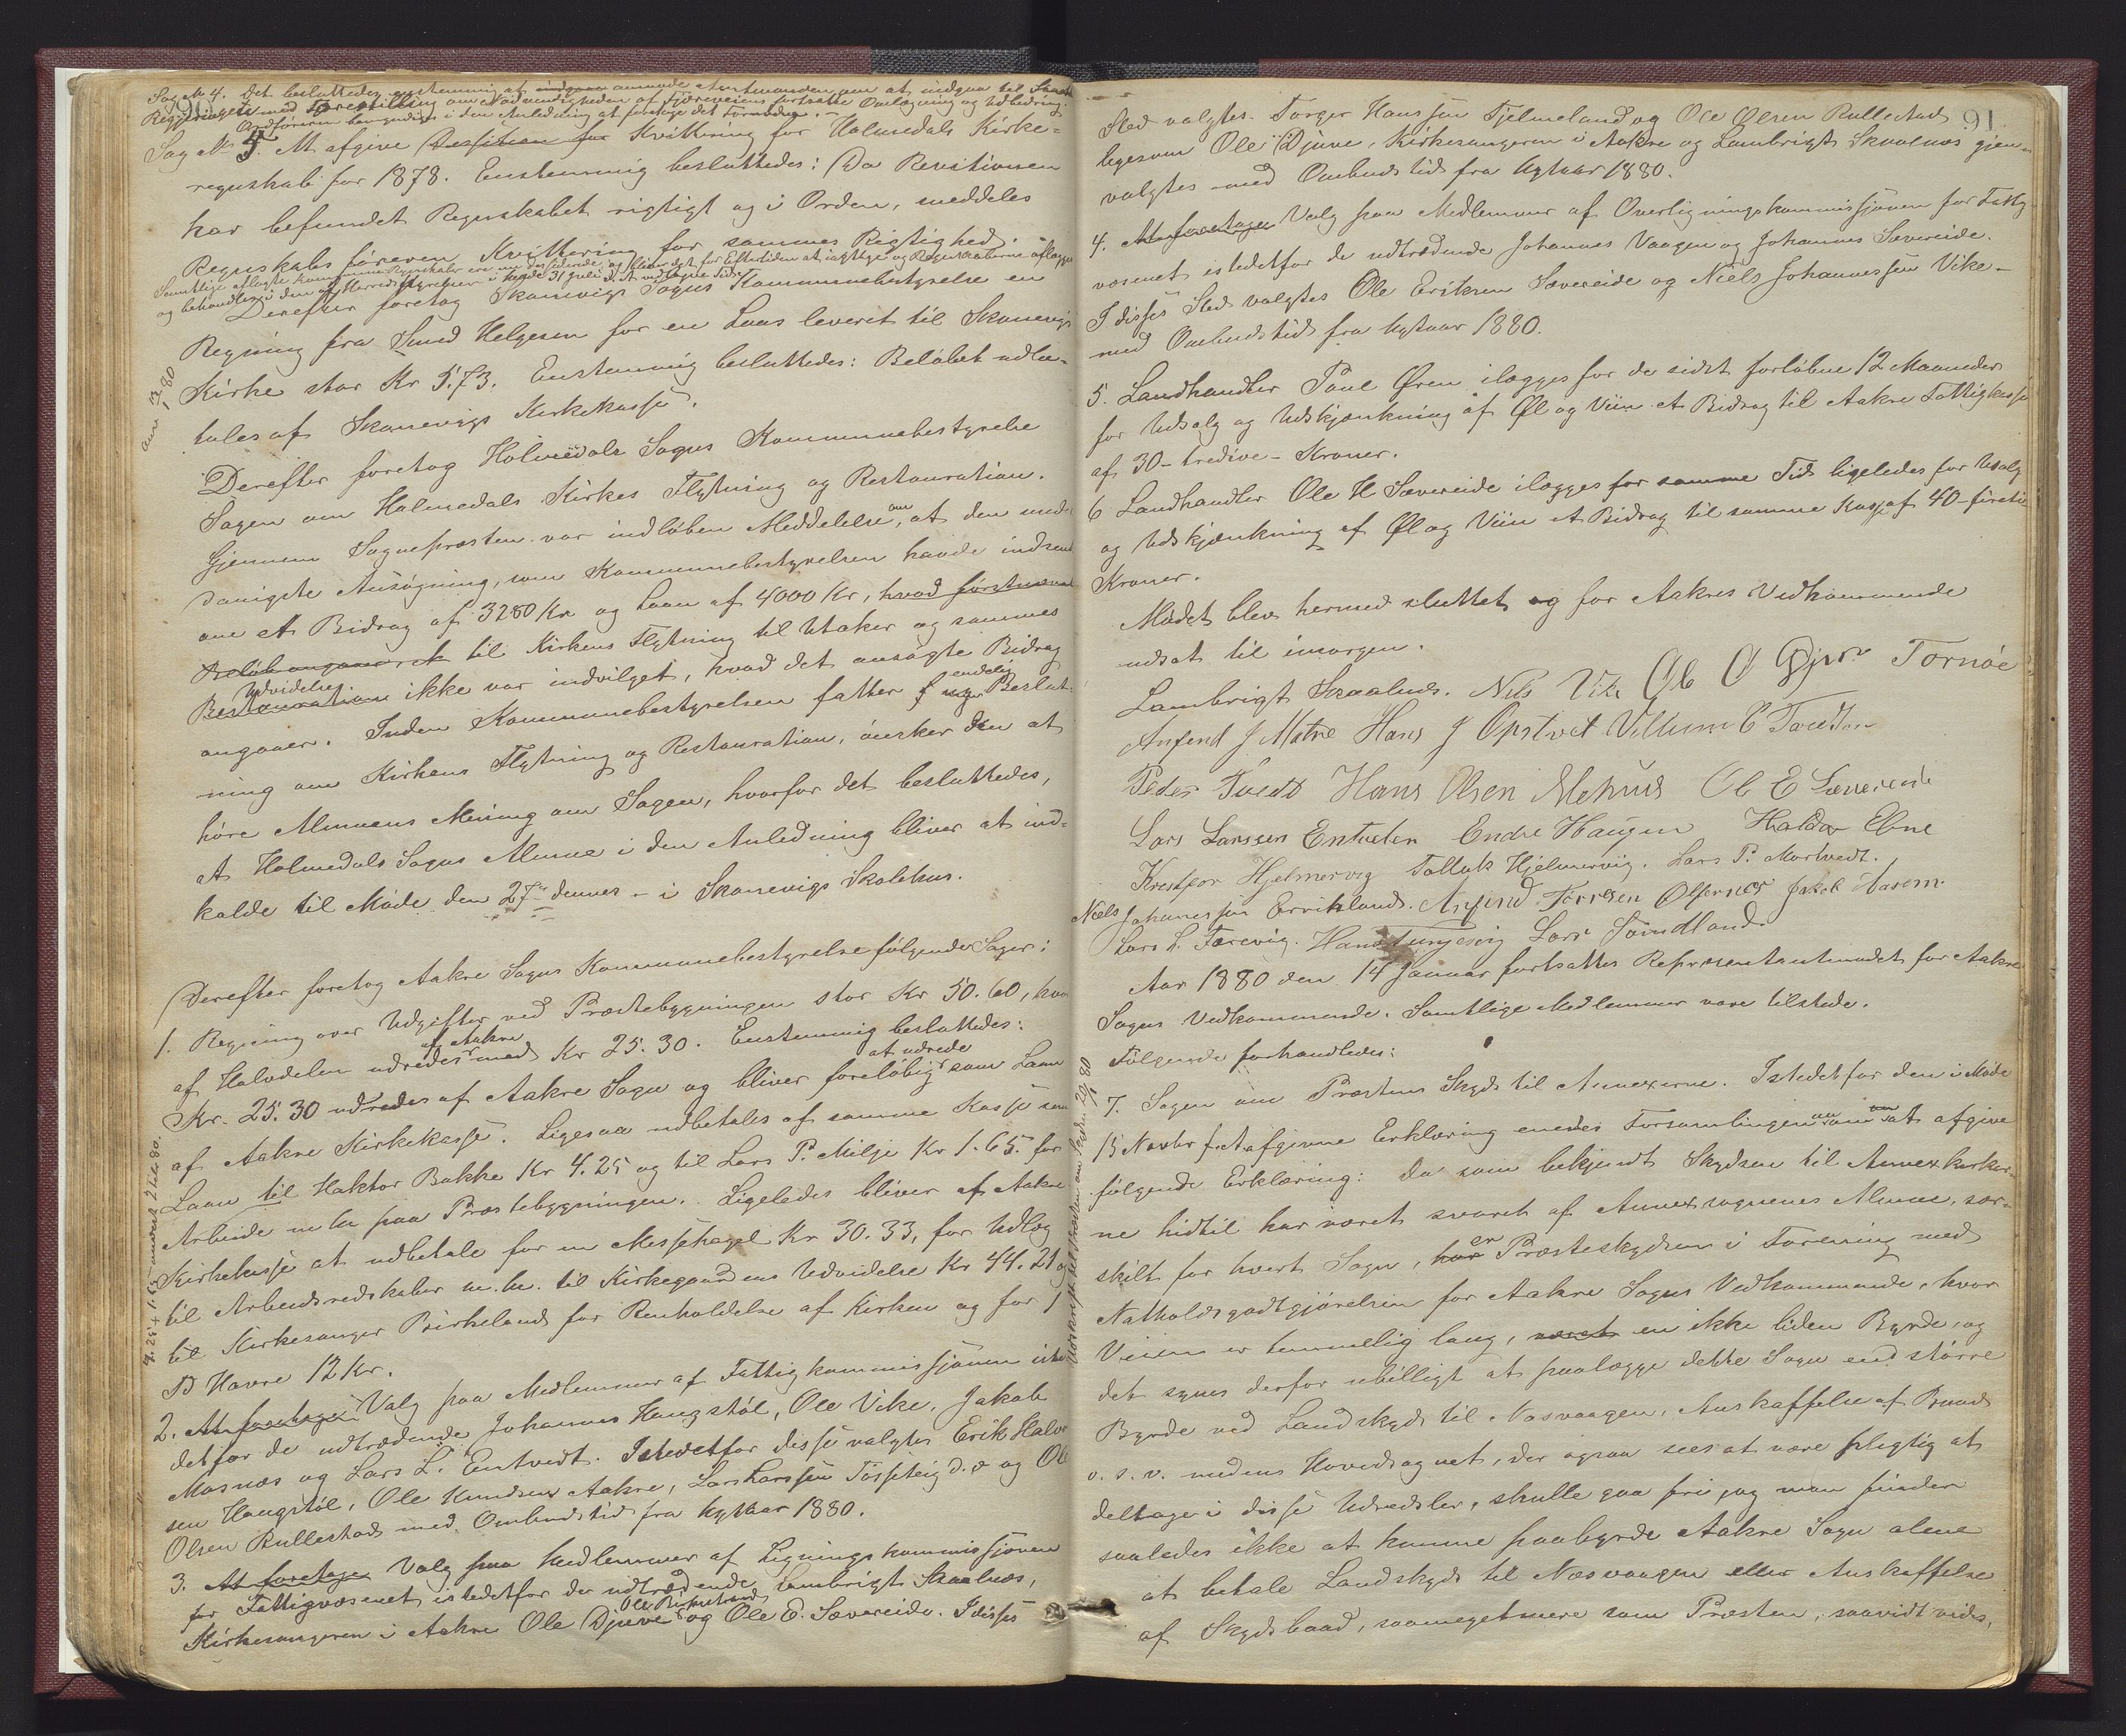 90
Sag No 4. Det besluttedes enstemmig at indgaa anmode Amtmanden om at indgaa til Stats
Regjeringen med Forestilling om Nødvendigheden af Fjæreveiens fortsatte Omlægning og Udbedring.
Ordføreren bemyndiges i den Anledning at foretage det Fornødne.
Sag No 5. At afgive Desision for Kvittering for Holmedals Kirke-
regnskab for 1878. Enstemmig besluttedes: Da Revisionen
har befundet Regnskabet rigtigt og i Orden, meddeles
Regnskabsføreren Kvittering for sammes Rigtighed.
Samtlige aflagte Kommune Regnskaber ere nu desiderede og bliver det for Eftertiden at iagttage og Regnskaberne aflægges
og behandles i den af Herredsstyrelsen i Møde 31 Juli d. A. vedtagne Tid.
Derefter foretog Skonevigs Sogns Kommunebestyrelse en
Regning fra Smed Helgesen for en Laas leveret til Skonevigs
Kirke stor Kr 5.73. Enstemmig besluttedes: Beløbet udbe-
tales af Skonevigs Kirkekasse.
Derefter foretog Holmedals Sogns Kommunebestyrelse
Sagen om Holmedals Kirkes Flytning og Restauration.
Gjennem Sognepræsten var indløben Meddelelse om, at den under-
danigste Ansøgning, som Kommunebestyrelsen havde indsendt
om et Bidrag af 3280 Kr og Laan af 4000 Kr, hvad førstnævnte
Beløb angaar, ek til Kirkens Flytning til Utaker og sammes
Udvidelse
Restauration ikke var indvilget, hvad det ansøgte Bidrag
angaaer. Inden Kommunebestyrelsen fatter endelig Beslut-
ning om Kirkens Flytning og Restauration, ønsker den at
høre Almuens Mening om Sagen, hvorfor det besluttedes,
At Holmedals Sogns Almue i den Anledning bliver at ind-
kalde til Møde den 27de dennes – i Skonevigs Skolehus.
Derefter foretog Aakre Sogns Kommunebestyrelse følgende Sager:
1. Regning over Udgifter ved Præstebygningen stor Kr 50.60, hvor
af Halvdelen udredes af Aakre med Kr 25.30. Enstemmig besluttedes:
Kr. 25.30 udredes af Aakre Sogn og bliver foreløbig at udrede som Laan
af Aakre Kirkekasse. Ligesaa udbetales af samme Kasse som
Laan til Haktor Bakke Kr 4.25 og til Lars P. Milje Kr 1.65. for
Arbeide m. m. paa Præstebygningen. Ligeledes bliver af Aakre
Kirkekasse at udbetale for en Messehagel Kr 30.33, for Udlæg
til Arbeidsredskaber m.m. til Kirkegaardens Udvidelse Kr 44.21 og
til Kirkesanger Birkeland for Renholdelse af Kirken og for 1
Td Havre 12 Kr.
2. At foretage Valg paa Medlemmer af Fattigkommissjonen iste-
detfor de udtrædende Johannes Haugstøl, Ole Vike, Jakob
Mosnæs og Lars L. Entvedt. Istedetfor disse valgtes Erik Halvor
sen Haugstøl, Ole Knudsen Aakre, Lars Larssen Tøsseteig d.æ og Ole
Olsen Rullestad med Ombudstid fra Nytaar 1880.
3. At foretage Valg paa Medlemmer af Ligningskommissjonen
for Fattigvæsenet istedetfor de udtrædende Lambrigt Skaalnæs,
Ole Birkeland
Kirkesangeren i Aakre Ole Djuve og Ole E. Sævereide. I disses
91.
Sted valgtes. Torger Hanssen Fjelmeland og Ole Olsen Rullestad
ligesom Ole Djuve, Kirkesangeren i Aakre og Lambrigt Skaalnæs gjen-
valgtes med Ombudstid fra Nytaar 1880.
4. At foretage Valg paa Medlemmer af Overligningskommissjonen for Fattig-
væsenet istedetfor de udtrædende Johannes Vaagen og Johannes Sævereide.
I disses Sted valgtes Ole Eriksen Sævereide og Niels Johannessen Vike
med Ombudstid fra Nytaar 1880.
5. Landhandler Poul Øren ilægges for de sidst forløbne 12 Maaneder
for Udsalg og Udskjænkning af Øl og Viin et Bidrag til Aakre Fattigkasse
af 30 – tredive – Kroner.
6 Landhandler Ole H Sævereide ilægges for samme Tid ligeledes for Udsalg
og Udskjænkning af Øl og Viin et Bidrag til samme Kasse af 40 – fireti
Kroner.
Mødet blev hermed sluttet og for Aakres Vedkommende
udsat til imorgen.
Lambrigt Skaalnes. Nils Vike Ole O Djuv Tornøe
Anfend J Matre Hans J Opstvet Villum E Tvedten
Peder Tvedt Hans Olsen Mehus Ole E Sævereide
Lars Larssen Entveten Endre Haugen Haldor Ebne
Krestfor Hjelmervig Tollak Hjelmervig. Lars P. Mortvedt.
Niels Johannessen Ervikland. Anfind Torresen Olfernes Jakob Aasem.
Lars L. Tørevig. Hans Tungesvig Lars Søndland
Aar 1880 den 14 Januar fortsattes Repræsentantmødet for Aakre
Sogns Vedkommende. Samtlige Medlemmer vare tilstede.
Følgende forhandledes:
7. Sagen om Præstens Skyds til Annexerne. Istedetfor den i Møde
15 Novbr f. A afgivne Erklæring enedes Forsamlingen om at afgive
følgende Erklæring: Da som bekjendt Skydsen til Annexkirker-
ne hidtil har været svaret af Annexsognenes Almue, sær-
skilt for hvert Sogn, har er Præsteskydsen i Forening med
Natholdsgodtgjørelsen for Aakre Sogns Vedkommende, hvor
Veien er temmelig lang, været en ikke liden Byrde, og
det synes derfor ubilligt at paalægge dette Sogn end større
Byrde ved Landskyds til Næsvaagen, Anskaffelse af Baad
o. s. v. medens Hovedsognet, der ogsaa sees at være pligtig at
deltage i disse Udredsler, skulle gaa fri, og man finder
saaledes ikke at kunne paabyrde Aakre Sogn alene
at betale Landskyds til Næsvaagen eller Anskaffelse
af Skydsbaad, saameget mere som Præsten, saavidt vides,